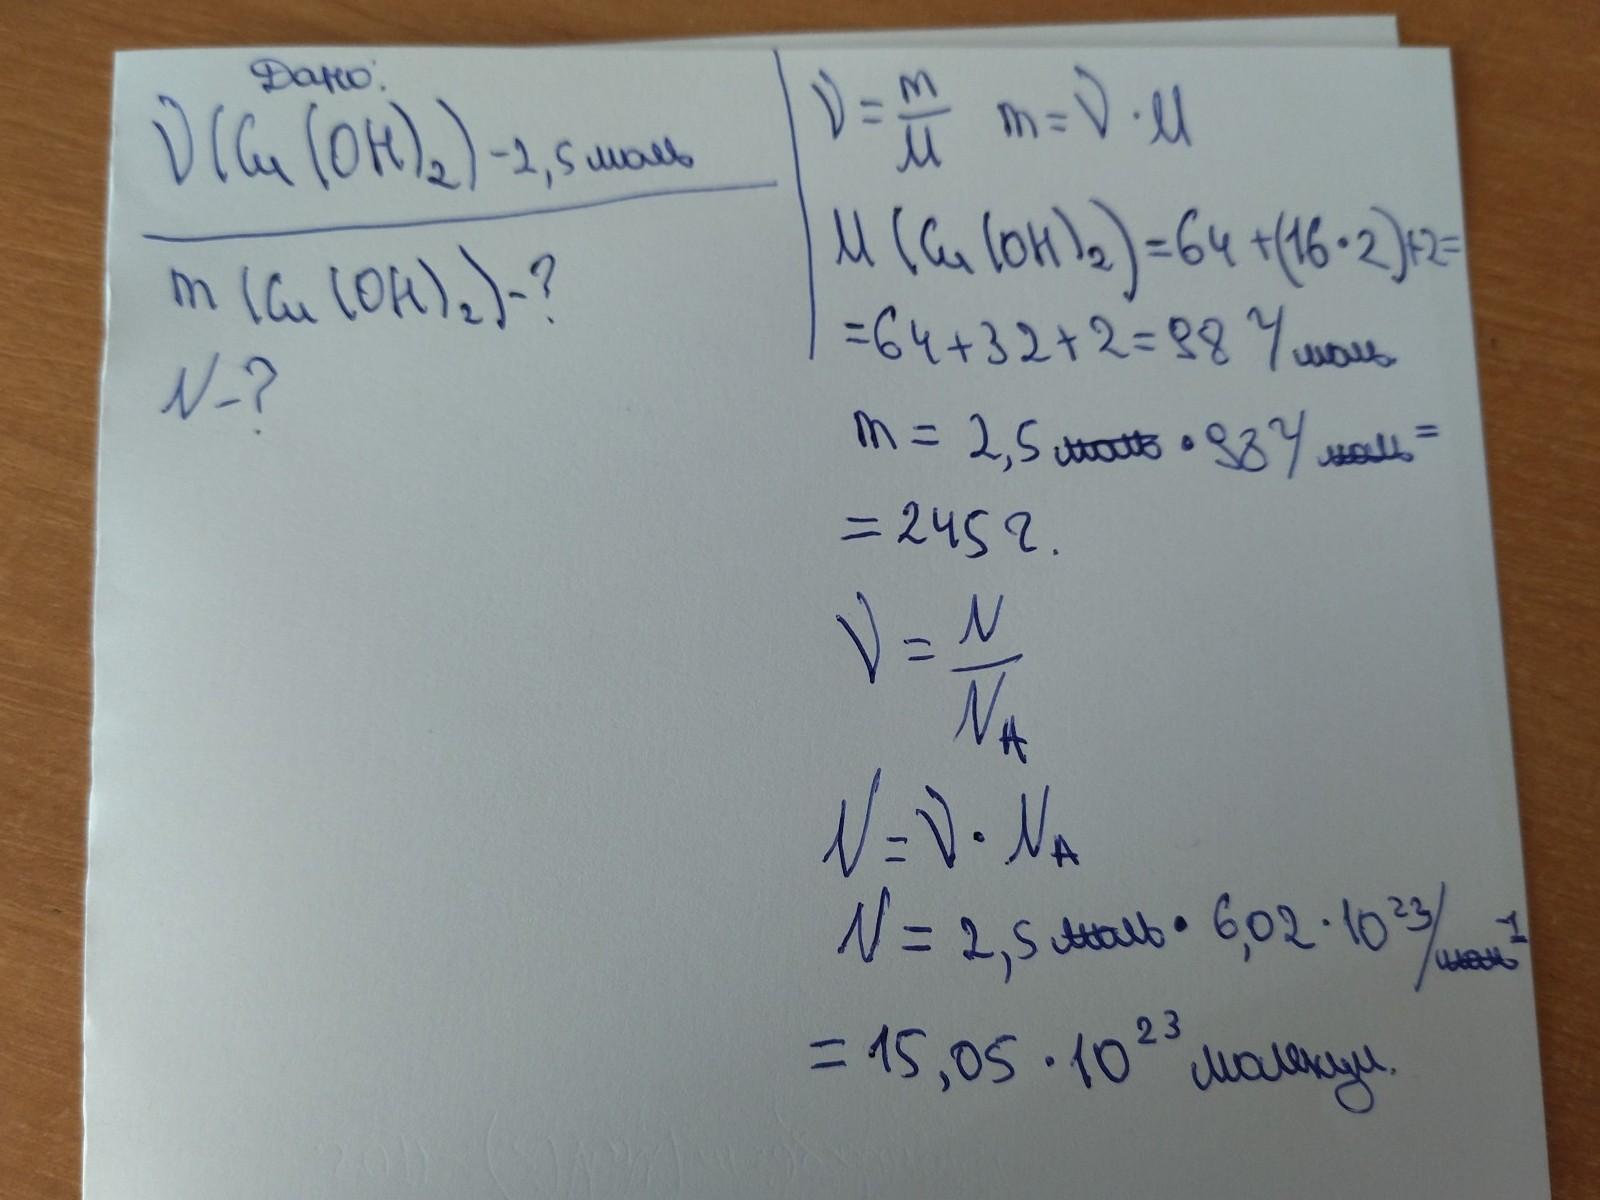 Дано:
ν(Cu(OH)₂) - 2,5 моль
m(Cu(OH)₂) - ?
N - ?
ν = m/M  m = ν · M
M(Cu(OH)₂) = 64 + (16 · 2) + 2 =
= 64 + 32 + 2 = 98 г/моль
m = 2,5 моль · 98 г/моль =
= 245 г.
ν = N/N_A
N = ν · N_A
N = 2,5 моль · 6,02 · 10²³/моль⁻¹
= 15,05 · 10²³ молекул.